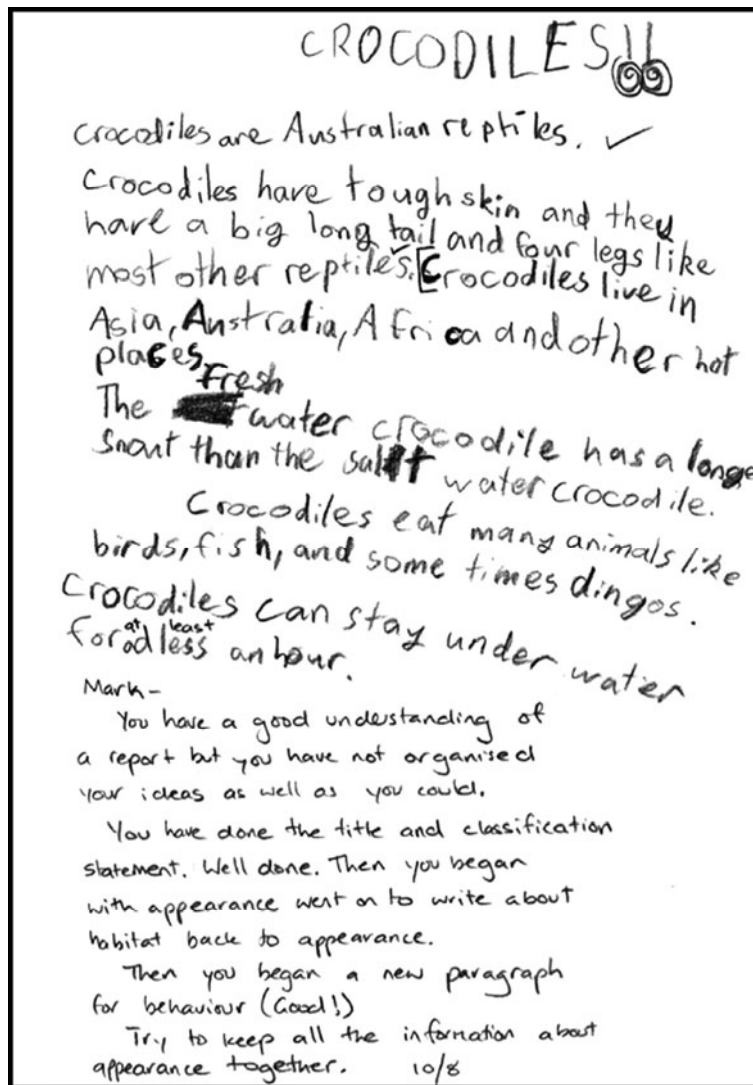 CROCODILES!!
crocodiles are Australian reptiles. ✓
Crocodiles have tough skin and they
have a big long tail and four legs like
most other reptiles. [Crocodiles live in
Asia, Australia, Africa and other hot
places.
Fresh
The water crocodile has a longe
snout than the salt water crocodile.
Crocodiles eat many animals like
birds, fish, and some times dingos.
Crocodiles can stay under water
at least
for adless an hour.
Mark-
You have a good understanding of
a report but you have not organised
your ideas as well as you could.
You have done the title and classification
statement. Well done. Then you began
with appearance went on to write about
habitat back to appearance.
Then you began a new paragraph
for behaviour (Good!)
Try to keep all the information about
appearance together. 10/8